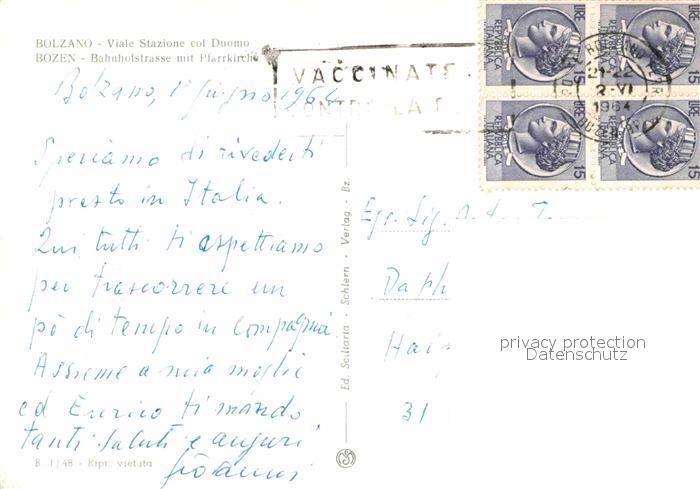 BOLZANO - Viale Stazione col Duomo
BOZEN - Bahnhofstrasse mit Pfarrkirche
VACCINATE
CONTRO LA
LIRE 15
REPUBBLICA ITALIANA
LIRE 15
REPUBBLICA ITALIANA
LIRE 15
REPUBBLICA ITALIANA
LIRE 15
REPUBBLICA ITALIANA
21-22
2-VI
1964
Bolzano, 1º giugno 1964
Speriamo di rivederti
presto in Italia.
Qui tutti ti aspettiamo
per trascorrere un
pò di tempo in compagnia.
Assieme a mia moglie
ed Enrico ti mando
tanti saluti e auguri
Giovanni
B 1/48 - Ripr. vietata
Ed. Scillaria - Schlern - Verlag - Bz.
Egr. Sig.
Daph
Hai
31
privacy protection
Datenschutz